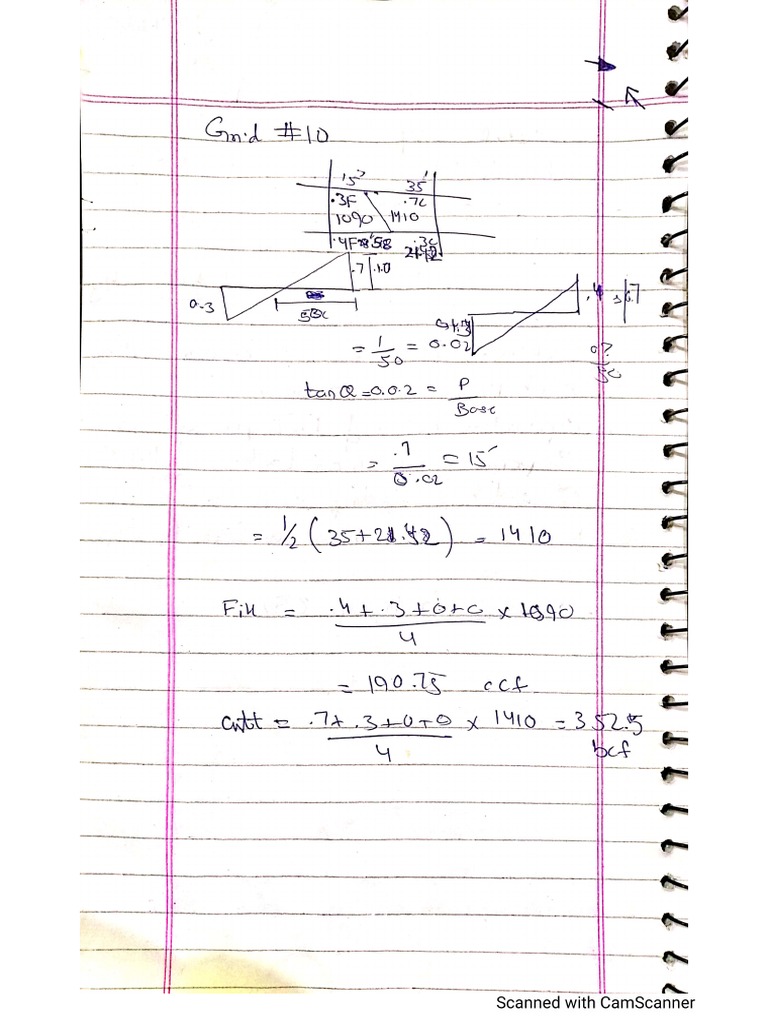 Grid #10
15' 35'
.3F .7c
1090 1410
.4F .3c
.7 1.0
0.3
50
.4 .7
= 1/50 = 0.02
0.7/50
tanQ = 0.02 = P/Base
= .7/0.02 = 15'
= 1/2 (35+21.42) = 1410
Fill = .4+.3+0+0/4 x 1090
= 190.75 ccf
cutt = .7+.3+0+0/4 x 1410 = 352.5
bcf
Scanned with CamScanner